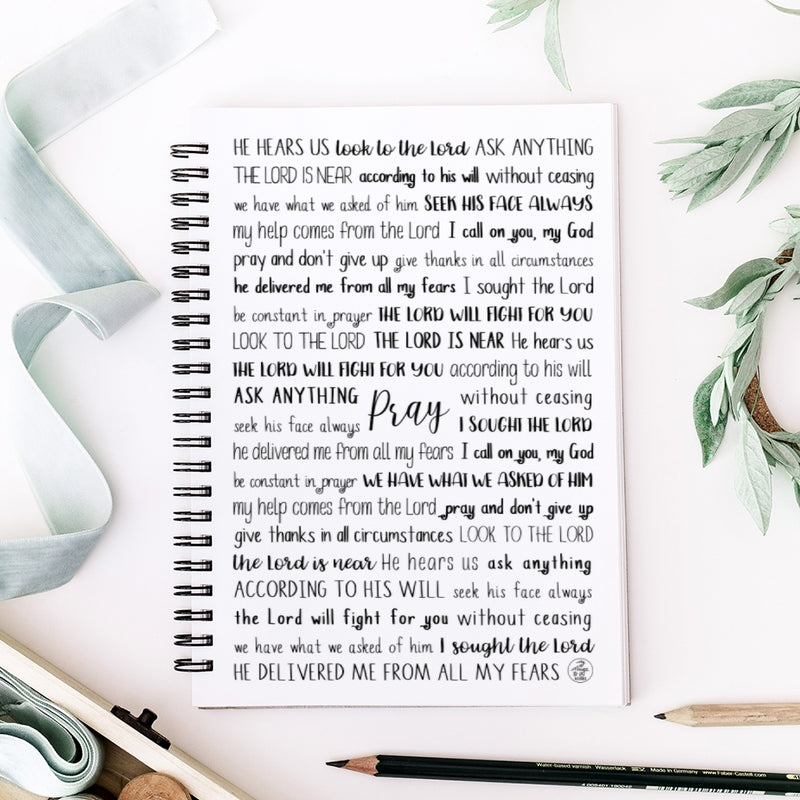 HE HEARS US look to the Lord ASK ANYTHING
THE LORD IS NEAR according to his will without ceasing
we have what we asked of him SEEK HIS FACE ALWAYS
my help comes from the Lord I call on you, my God
pray and don't give up give thanks in all circumstances
he delivered me from all my fears I sought the Lord
be constant in prayer THE LORD WILL FIGHT FOR YOU
LOOK TO THE LORD THE LORD IS NEAR He hears us
THE LORD WILL FIGHT FOR YOU according to his will
ASK ANYTHING Pray without ceasing
seek his face always I SOUGHT THE LORD
he delivered me from all my fears I call on you, my God
be constant in prayer WE HAVE WHAT WE ASKED OF HIM
my help comes from the Lord pray and don't give up
give thanks in all circumstances LOOK TO THE LORD
the Lord is near He hears us ask anything
ACCORDING TO HIS WILL seek his face always
the Lord will fight for you without ceasing
we have what we asked of him I sought the Lord
HE DELIVERED ME FROM ALL MY FEARS
Water-based varnish Wasserlack Made in Germany www.Faber-Castell.com